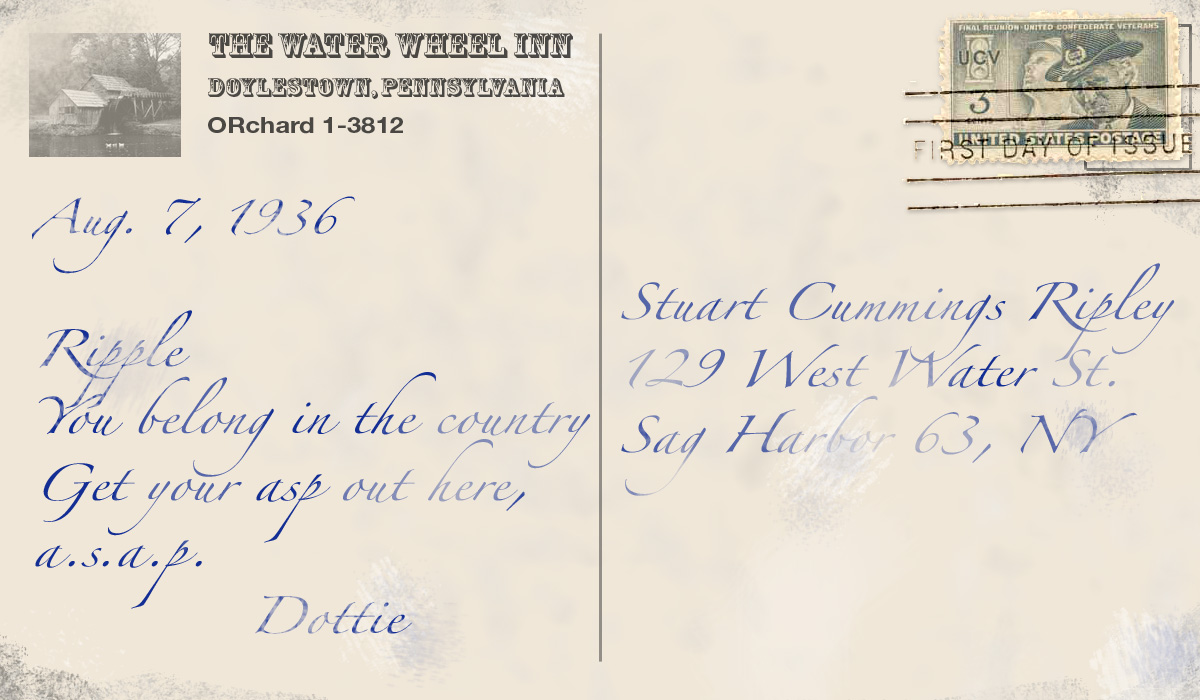 THE WATER WHEEL INN
DOYLESTOWN, PENNSYLVANIA
ORchard 1-3812
Aug. 7, 1936
Ripple
You belong in the country
Get your asp out here,
a.s.a.p.
Dottie
FINAL REUNION · UNITED CONFEDERATE VETERANS
UCV
3
CENTS
UNITED STATES POSTAGE
FIRST DAY OF ISSUE
Stuart Cummings Ripley
129 West Water St.
Sag Harbor 63, NY